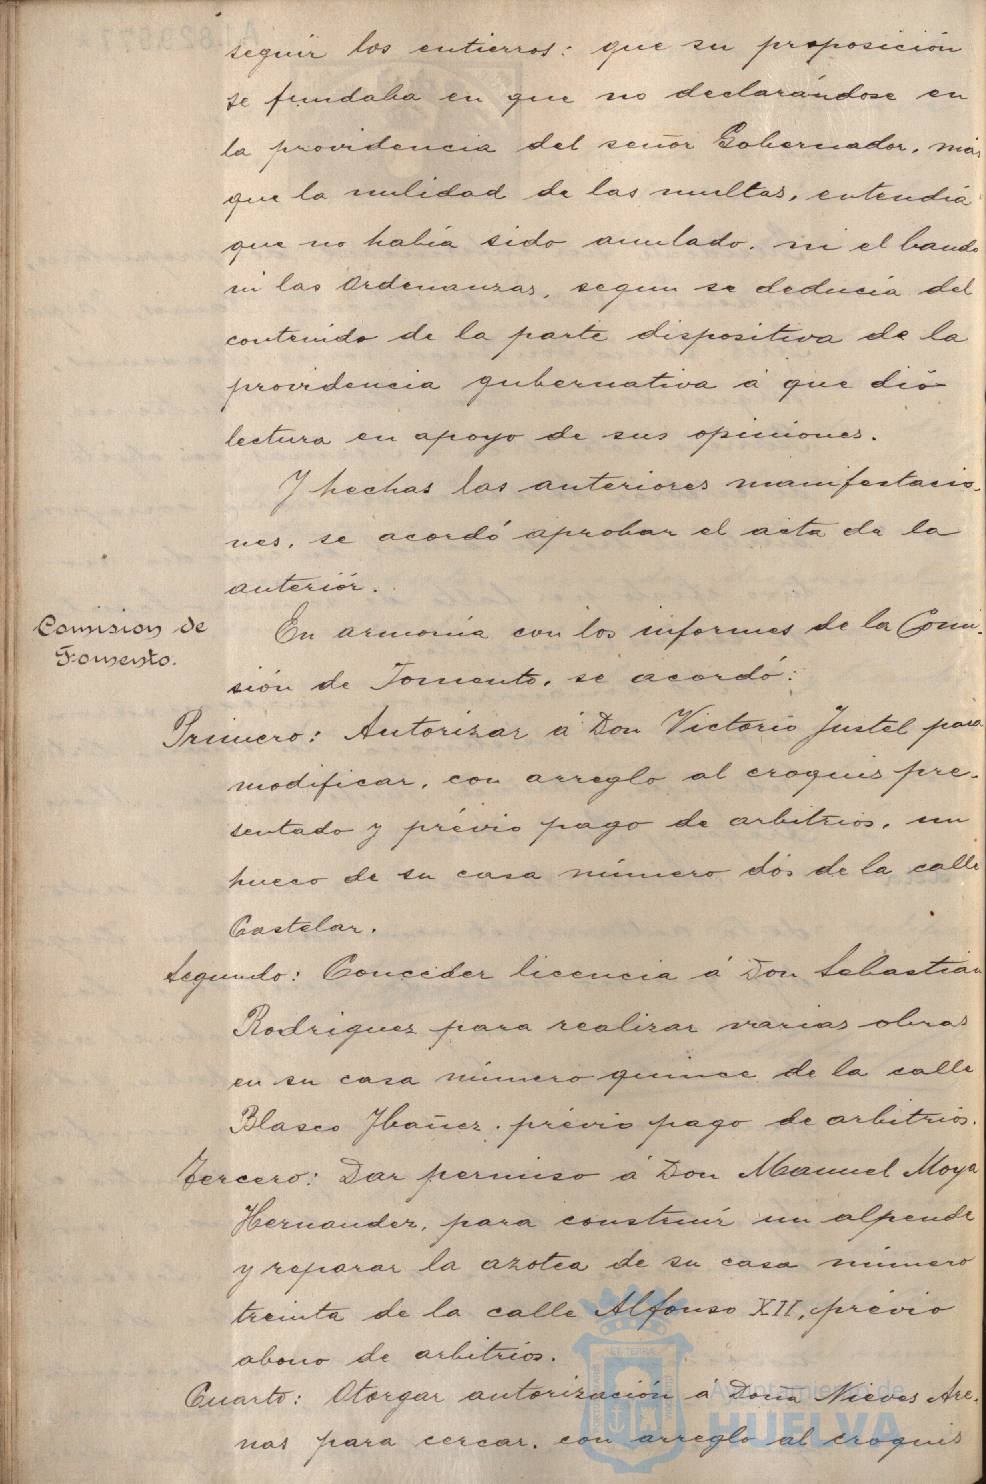 seguir los entierros: que su proposición
se fundaba en que no declarándose en
la providencia del señor Gobernador, más
que la nulidad de las multas, entendiá
que no había sido anulado, ni el bando
ni las Ordenanzas, segun se deducia del
contenido de la parte dispositiva de la
providencia gubernativa á que dió
lectura en apoyo de sus opiniones.
Y hechas las anteriores manifestacio-
nes, se acordó aprobar el acta de la
anteriór.
Comision de
Fomento.
En armonía con los informes de la Comi-
sión de Fomento, se acordó:
Primero: Autorizar á Don Victorio Justel para
modificar, con arreglo al croquis pre-
sentado y prévio pago de arbitrios, un
hueco de su casa número dós de la calle
Castelar.
Segundo: Conceder licencia á Don Sebastian
Rodriguez para realizar varias obras
en su casa número quince de la calle
Blasco Ibañez, prévio pago de arbitrios.
Tercero: Dar permiso á Don Manuel Moya
Hernandez, para construir un alpende
y reparar la azotea de su casa número
treinta de la calle Alfonso XII, prévio
abono de arbitrios.
Cuarto: Otorgar autorización á Doña Nieves Are-
nas para cercar, con arreglo al croquis
Ayuntamiento de
HUELVA